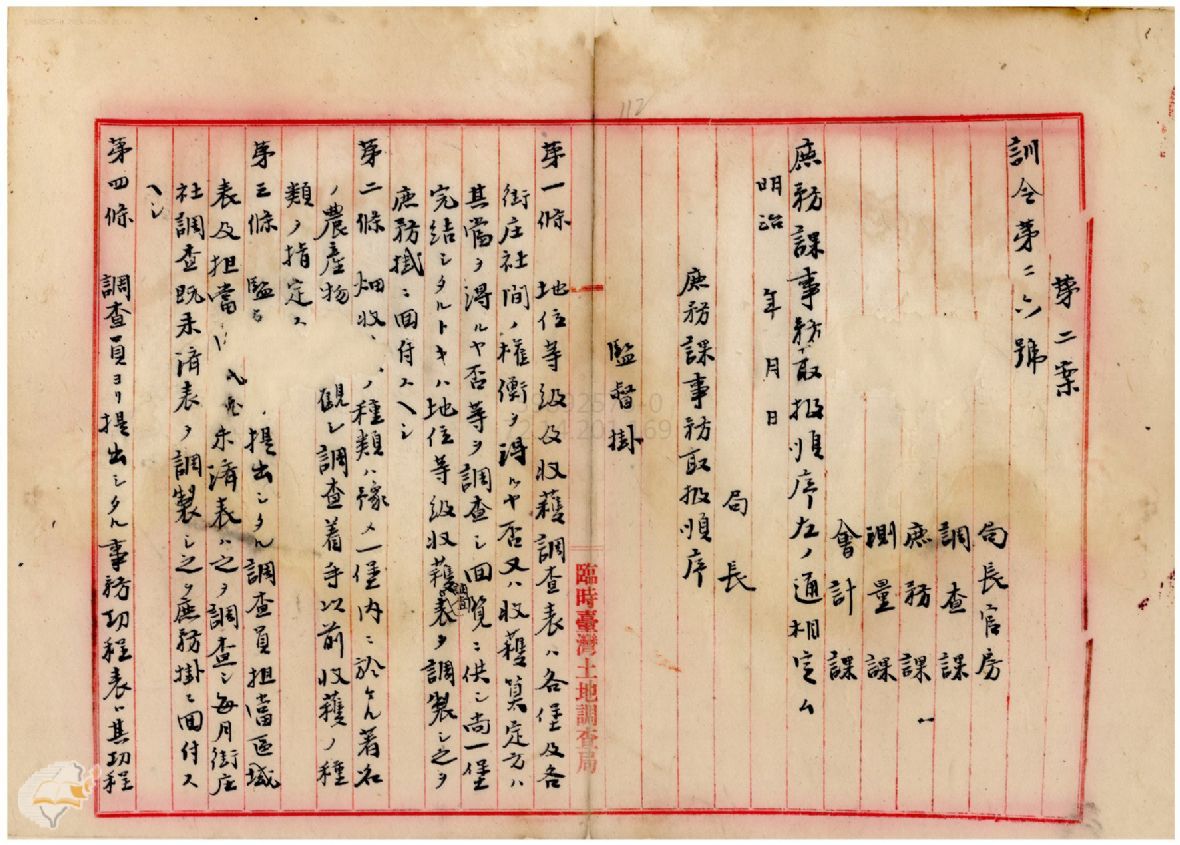 第二案
訓令第二六號
局長官房
調査課
庶務課
測量課
會計課
庶務課事務取扱順序左ノ通相定ム
明治 年 月 日
局長
庶務課事務取扱順序
監督掛
第一條 地位等級及收穫調査表ハ各堡及各
街庄社間ノ權衡ヲ得ルヤ否又ハ收穫算定方ハ
其當ヲ得ルヤ否等ヲ調査シ回覽ニ供シ尚一堡
完結シタルトキハ地位等級收穫調査表ヲ調製シ之ヲ
庶務掛ニ回付スヘシ
第二條 畑收 種類ハ豫メ一堡内ニ於ケル著名
ノ農産物 観シ調査着手以前收穫ノ種
類ノ指定ス
第三條 監 提出シタル調査員担當區域
表及担當 未濟表ハ之ヲ調査シ毎月街庄
社調査既未濟表ヲ調製シ之ヲ庶務掛ニ回付ス
ヘシ
第四條 調査員ヨリ提出シタル事務功程表ハ其功程
臨時臺灣土地調査局
112